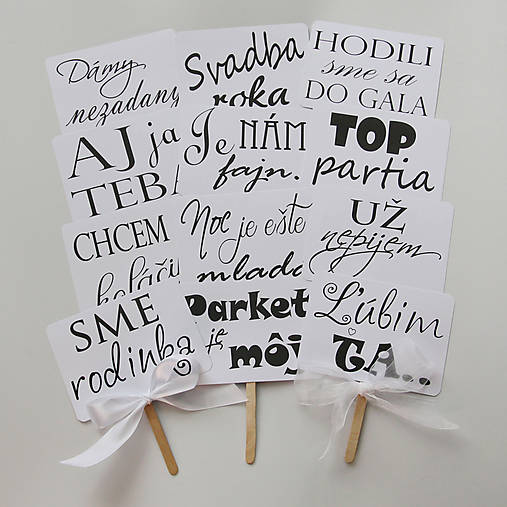 Dámy
nezadaný
Svadba
roka
HODILI
sme sa
DO GALA
AJ ja
TEBA
Je NÁM
fajn.
TOP
partia
CHCEM
koláči
Noc je ešte
mladá
UŽ
nepijem
SME
rodinka
Parket
je
môj
Ľúbim
ŤA...